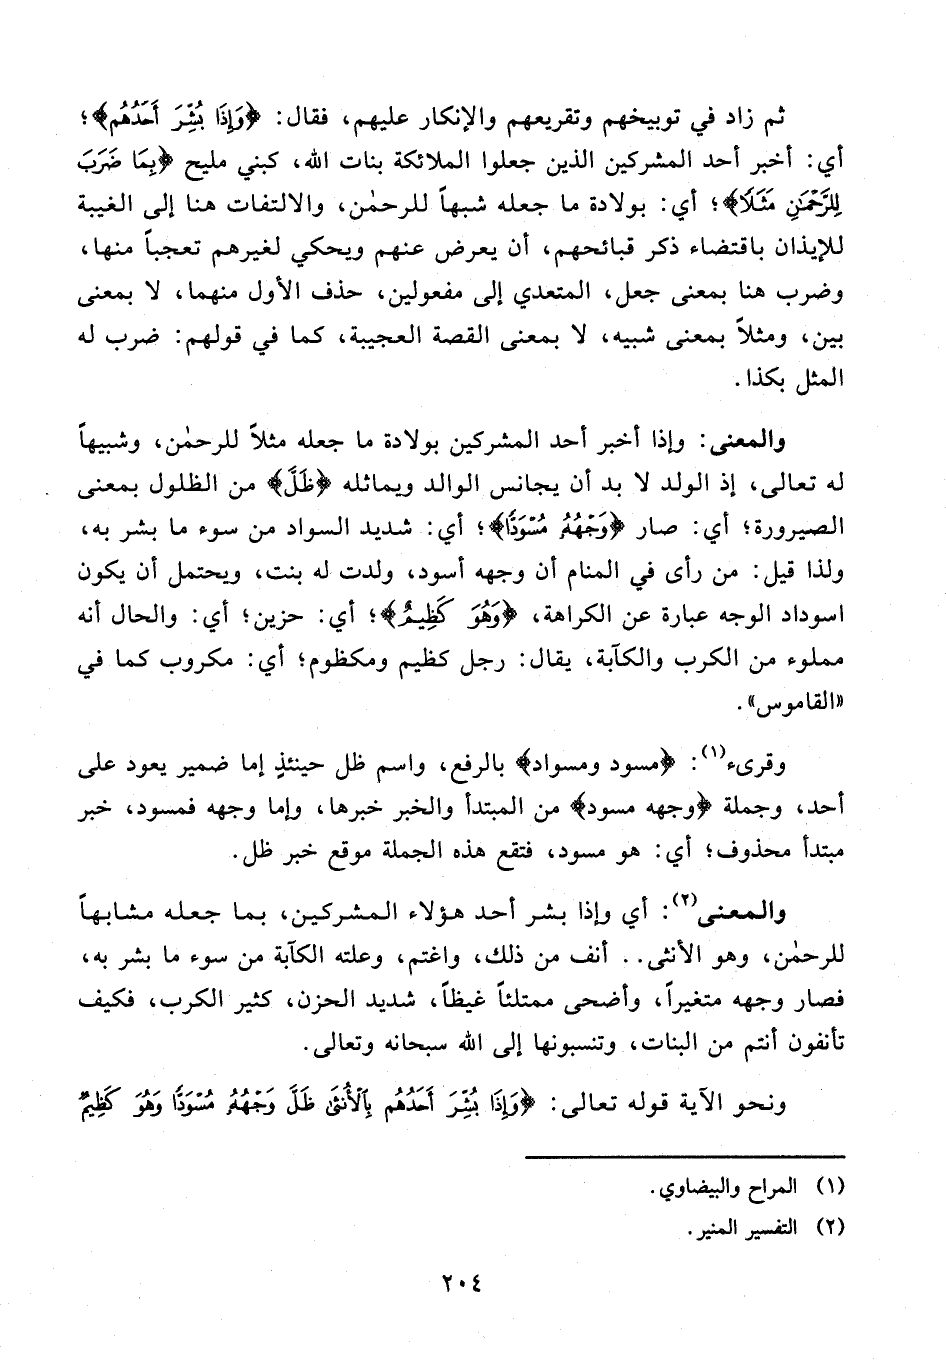 ثم زاد في توبيخهم وتقريعهم والإنكار عليهم، فقال: ﴿وَإِذَا بُشِّرَ أَحَدُهُم﴾؛
أي: أخبر أحد المشركين الذين جعلوا الملائكة بنات الله، كبني مليح ﴿بِمَا ضَرَبَ
لِلرَّحْمَٰنِ مَثَلًا﴾؛ أي: بولادة ما جعله شبهاً للرحمٰن، والالتفات هنا إلى الغيبة
للإيذان باقتضاء ذكر قبائحهم، أن يعرض عنهم ويحكي لغيرهم تعجباً منها،
وضرب هنا بمعنى جعل، المتعدي إلى مفعولين، حذف الأول منهما، لا بمعنى
بين، ومثلاً بمعنى شبيه، لا بمعنى القصة العجيبة، كما في قولهم: ضرب له
المثل بكذا.
والمعنى: وإذا أخبر أحد المشركين بولادة ما جعله مثلاً للرحمٰن، وشبيهاً
له تعالى، إذ الولد لا بد أن يجانس الوالد ويماثله ﴿ظَلَّ﴾ من الظلول بمعنى
الصيرورة؛ أي: صار ﴿وَجْهُهُ مُسْوَدًّا﴾؛ أي: شديد السواد من سوء ما بشر به،
ولذا قيل: من رأى في المنام أن وجهه أسود، ولدت له بنت، ويحتمل أن يكون
اسوداد الوجه عبارة عن الكراهة، ﴿وَهُوَ كَظِيمٌ﴾؛ أي: حزين؛ أي: والحال أنه
مملوء من الكرب والكآبة، يقال: رجل كظيم ومكظوم؛ أي: مكروب كما في
«القاموس».
وقرىء(١): ﴿مسود ومسواد﴾ بالرفع، واسم ظل حينئذٍ إما ضمير يعود على
أحد، وجملة ﴿وجهه مسود﴾ من المبتدأ والخبر خبرها، وإما وجهه فمسود، خبر
مبتدأ محذوف؛ أي: هو مسود، فتقع هذه الجملة موقع خبر ظل.
والمعنى(٢): أي وإذا بشر أحد هؤلاء المشركين، بما جعله مشابهاً
للرحمٰن، وهو الأنثى.. أنف من ذلك، واغتم، وعلته الكآبة من سوء ما بشر به،
فصار وجهه متغيراً، وأضحى ممتلئاً غيظاً، شديد الحزن، كثير الكرب، فكيف
تأنفون أنتم من البنات، وتنسبونها إلى الله سبحانه وتعالى.
ونحو الآية قوله تعالى: ﴿وَإِذَا بُشِّرَ أَحَدُهُم بِالْأُنثَىٰ ظَلَّ وَجْهُهُ مُسْوَدًّا وَهُوَ كَظِيمٌ
(١) المراح والبيضاوي.
(٢) التفسير المنير.
٢٠٤